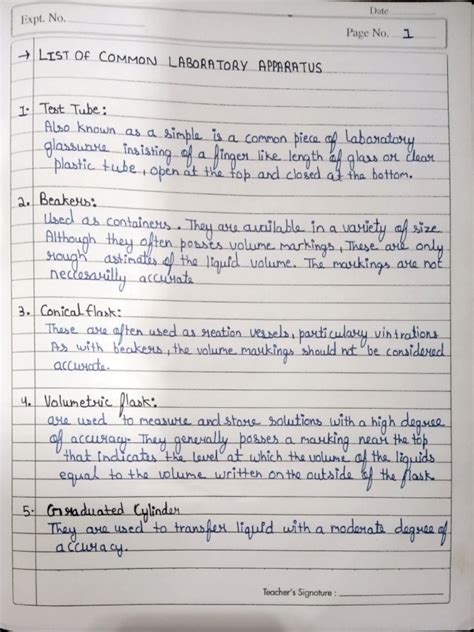 Date
Expt. No.
Page No. 1
→ LIST OF COMMON LABORATORY APPARATUS
1. Test Tube:
Also known as a simple is a common piece of laboratory
glassware insisting of a finger like length of glass or clear
plastic tube, open at the top and closed at the bottom.
2. Beakers:
Used as containers. They are available in a variety of size
Although they often posses volume markings, These are only
rough astimates of the liquid volume. The markings are not
neccesarilly accurate
3. Conical flask:
These are often used as reation vessels, particulary vintrations
As with beakers, the volume markings should not be considered
accurate.
4. Volumetric flask:
are used to measure and store solutions with a high degree
of accuracy. They generally posses a marking near the top
that indicates the level at which the volume of the liquids
equal to the volume written on the outside of the flask.
5. Graduated Cylinder
They are used to transfer liquid with a moderate degree of
accuracy.
Teacher's Signature :